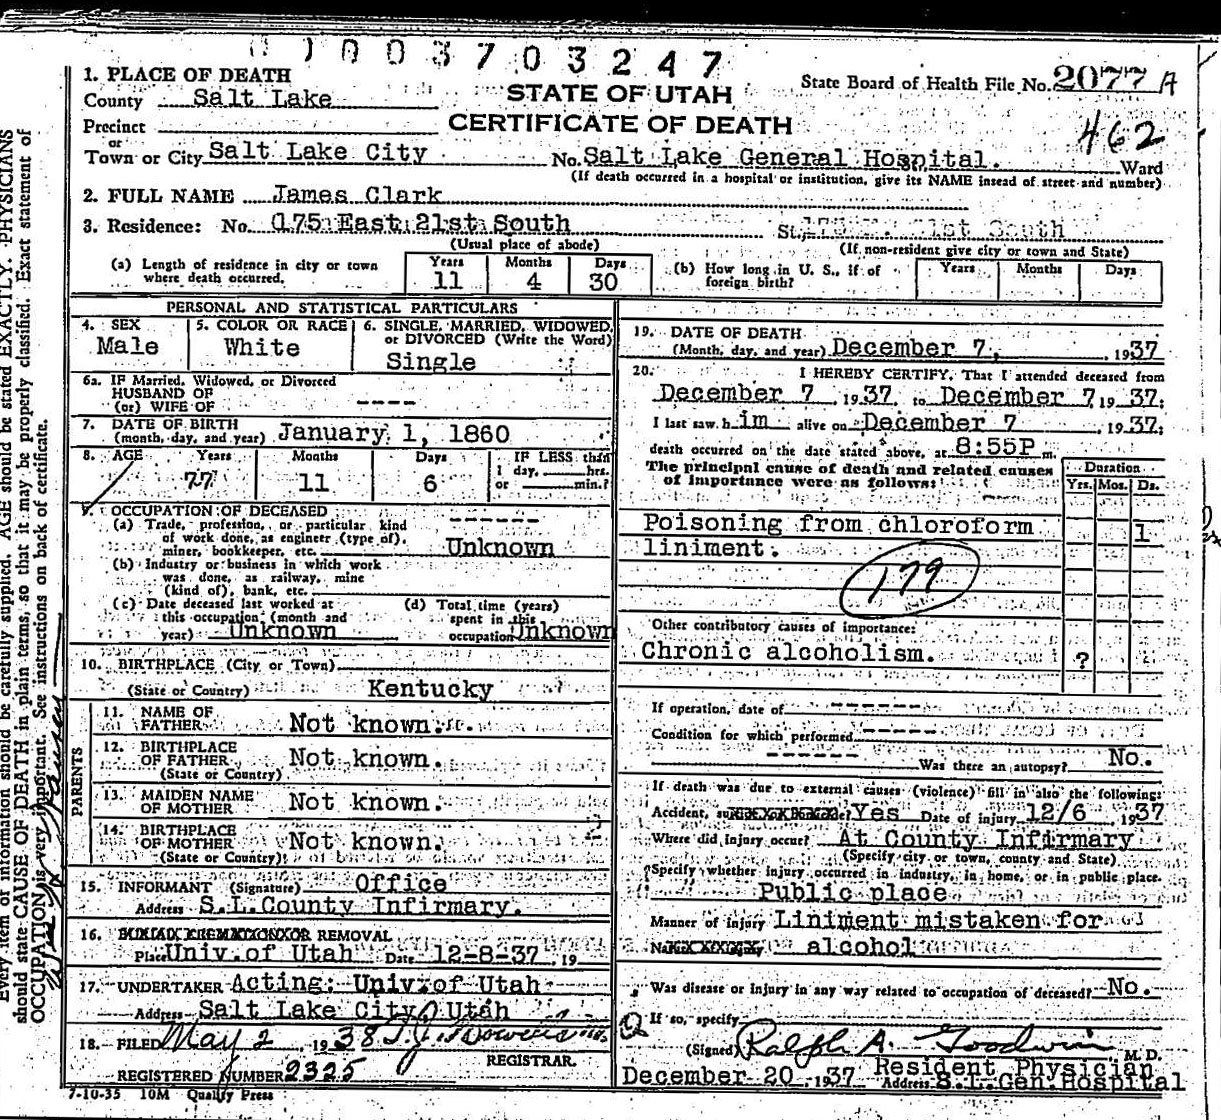 01003703247
1. PLACE OF DEATH
County Salt Lake
STATE OF UTAH
State Board of Health File No. 2077 A
Precinct
CERTIFICATE OF DEATH
462
or
Town or City Salt Lake City No. Salt Lake General Hospital. Ward
(If death occurred in a hospital or institution, give its NAME insead of street and number)
2. FULL NAME James Clark
3. Residence: No. 175 East 21st South St. 21st South
(Usual place of abode) (If non-resident give city or town and State)
(a) Length of residence in city or town where death occurred. Years 11 Months 4 Days 30
(b) How long in U. S., if of foreign birth? Years Months Days
PERSONAL AND STATISTICAL PARTICULARS
4. SEX Male
5. COLOR OR RACE White
6. SINGLE, MARRIED, WIDOWED, or DIVORCED (Write the Word) Single
6a. IF Married, Widowed, or Divorced
HUSBAND OF
(or) WIFE OF ----
7. DATE OF BIRTH
(month, day, and year) January 1, 1860
8. AGE Years 77 Months 11 Days 6 IF LESS than 1 day, hrs. or min.?
9. OCCUPATION OF DECEASED ------
(a) Trade, profession, or particular kind
of work done, as engineer (type of),
miner, bookkeeper, etc. Unknown
(b) Industry or business in which work
was done, as railway, mine
(kind of), bank, etc.
(c) Date deceased last worked at
this occupation, (month and
year) Unknown
(d) Total time (years)
spent in this
occupation Unknown
10. BIRTHPLACE (City or Town)
(State or Country) Kentucky
PARENTS
11. NAME OF
FATHER Not known.
12. BIRTHPLACE
OF FATHER Not known.
(State or Country)
13. MAIDEN NAME
OF MOTHER Not known.
14. BIRTHPLACE
OF MOTHER Not known.
(State or Country)
15. INFORMANT (Signature) Office
Address S.L.County Infirmary.
16. REMOVAL
Place Univ.of Utah Date 12-8-37, 19
17. UNDERTAKER Acting: Univ.of Utah
Address Salt Lake City, Utah
18. FILED May 2, 1938
REGISTRAR.
REGISTERED NUMBER 2325
7-10-35 10M Quality Press
19. DATE OF DEATH
(Month, day, and year) December 7, , 1937
20. I HEREBY CERTIFY, That I attended deceased from
December 7, 1937, to December 7, 1937;
I last saw him alive on December 7, 1937;
death occurred on the date stated above, at 8:55P m.
The principal cause of death and related causes
of importance were as follows:
Duration
Yrs. Mos. Ds.
Poisoning from chloroform 1
liniment.
179
Other contributory causes of importance:
Chronic alcoholism. ?
If operation, date of ------
Condition for which performed -----
------ Was there an autopsy? No.
If death was due to external causes (violence) fill in also the following:
Accident, Yes Date of injury 12/6, 1937
Where did injury occur? At County Infirmary
(Specify city or town, county and State)
Specify whether injury occurred in industry, in home, or in public place.
Public place
Manner of injury Liniment mistaken for
alcohol
Was disease or injury in any way related to occupation of deceased? No.
If so, specify
(Signed) Ralph A. Goodwin M. D.
Resident Physician
December 20, 1937 Address S.L.Gen.Hospital
Every item of information should be carefully supplied. AGE should be stated EXACTLY. PHYSICIANS
should state CAUSE OF DEATH in plain terms, so that it may be properly classified. Exact statement of
OCCUPATION is very important. See instructions on back of certificate.